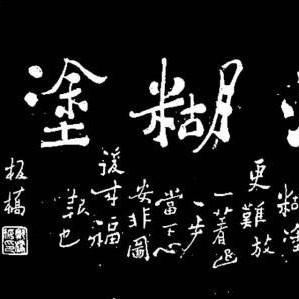 糊塗
糊塗
更難放
一著退
一步
當下心
安非圖
後来福
報也
板橋